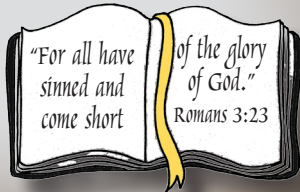 “For all have
sinned and
come short
of the glory
of God.”
Romans 3:23